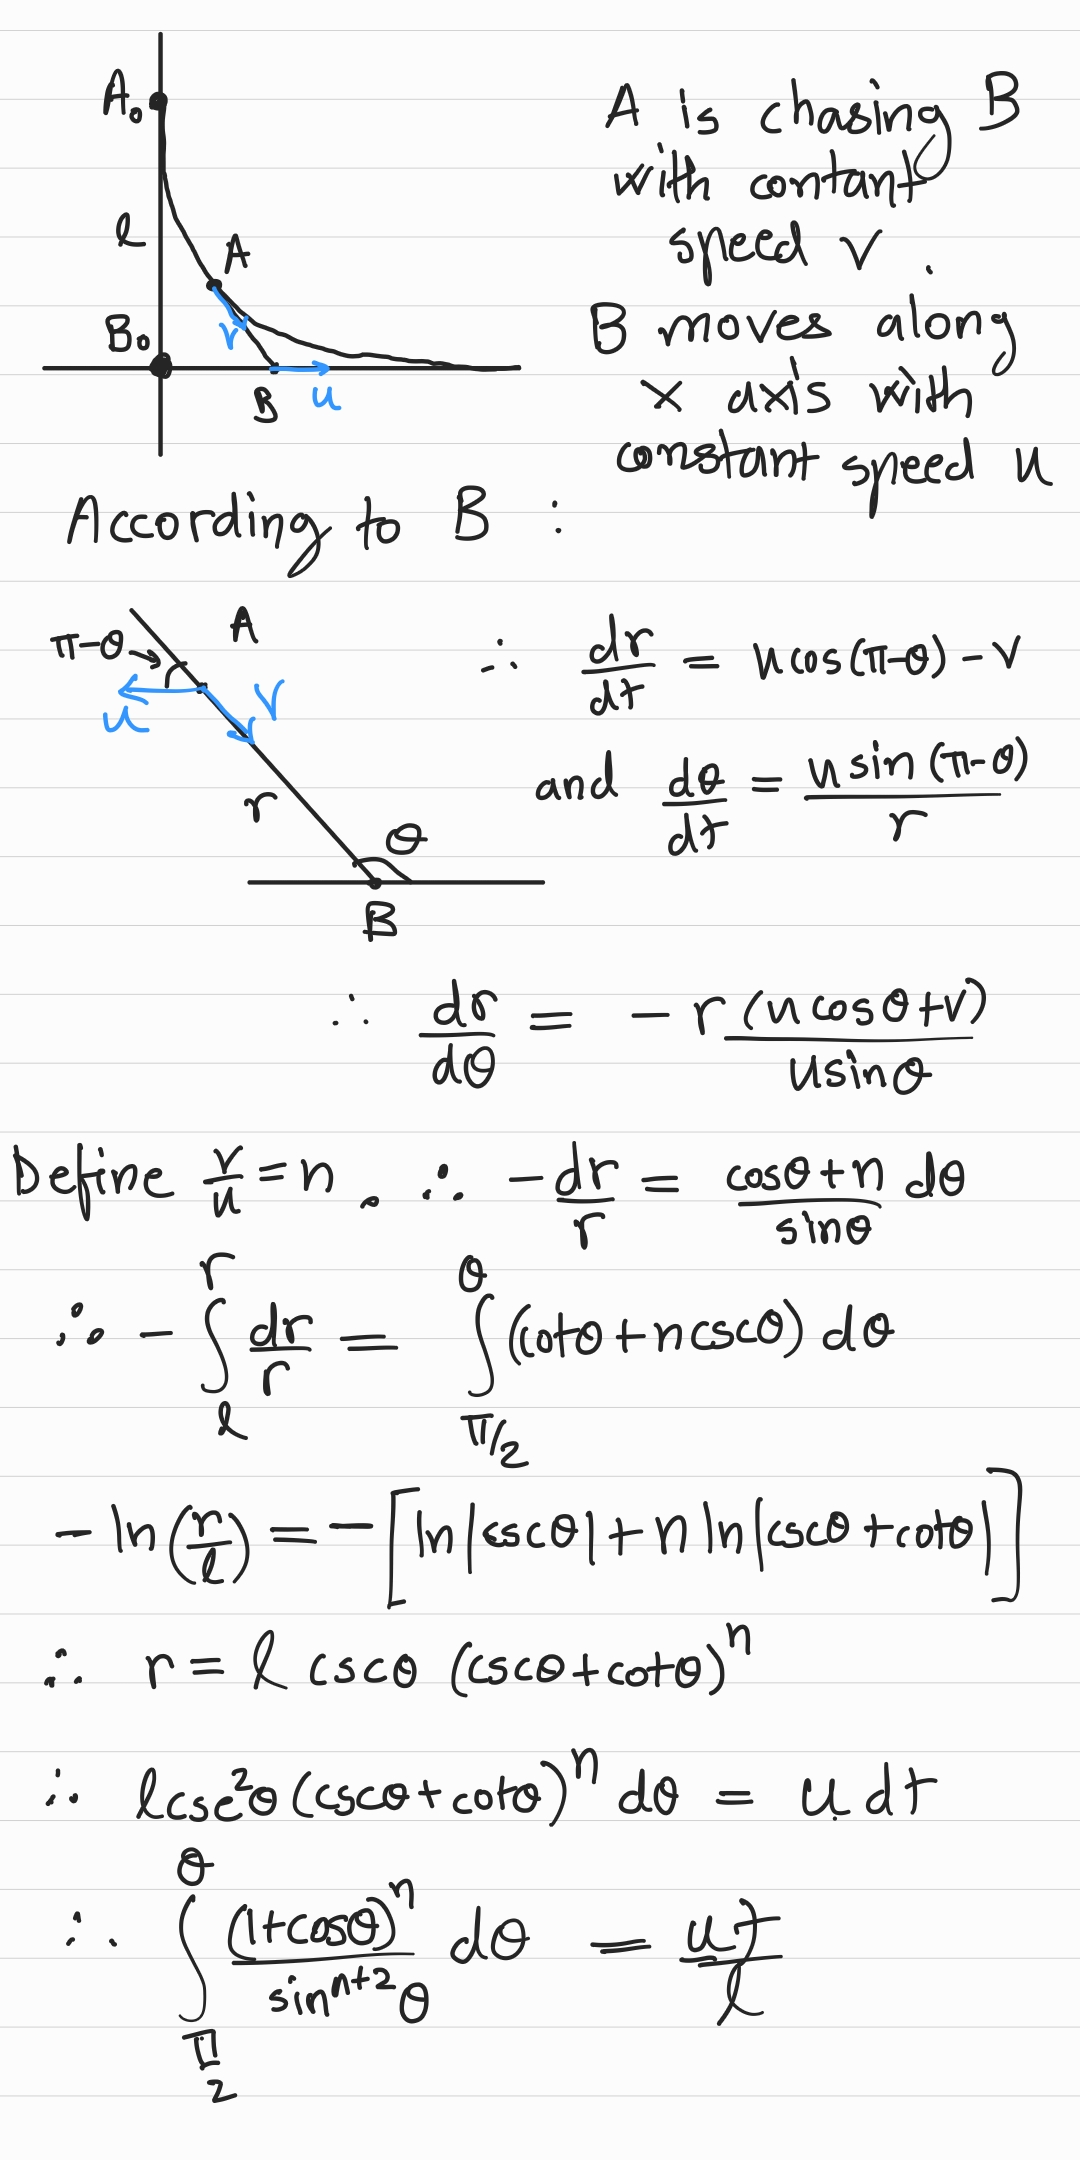 A₀
l
A
v
B₀
B
u
A is chasing B
with contant
speed v .
B moves along
x axis with
constant speed u
According to B :
π-θ
A
u
v
r
θ
B
∴ dr/dt = u cos(π-θ) - v
and dθ/dt = u sin(π-θ)/r
∴ dr/dθ = - r (u cosθ+v)/usinθ
Define v/u = n . ∴ -dr/r = (cosθ+n)/sinθ dθ
∴ - ∫_l^r dr/r = ∫_{π/2}^θ (cotθ + n cscθ) dθ
- ln(r/l) = - [ln|cscθ| + n ln|cscθ + cotθ|]
∴ r = l cscθ (cscθ + cotθ)ⁿ
∴ l csc²θ (cscθ + cotθ)ⁿ dθ = u dt
∴ ∫_{π/2}^θ (1+cosθ)ⁿ/sinⁿ⁺²θ dθ = ut/l